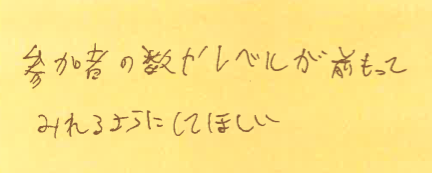 参加者の数やレベルが前もって
みれるようにしてほしい